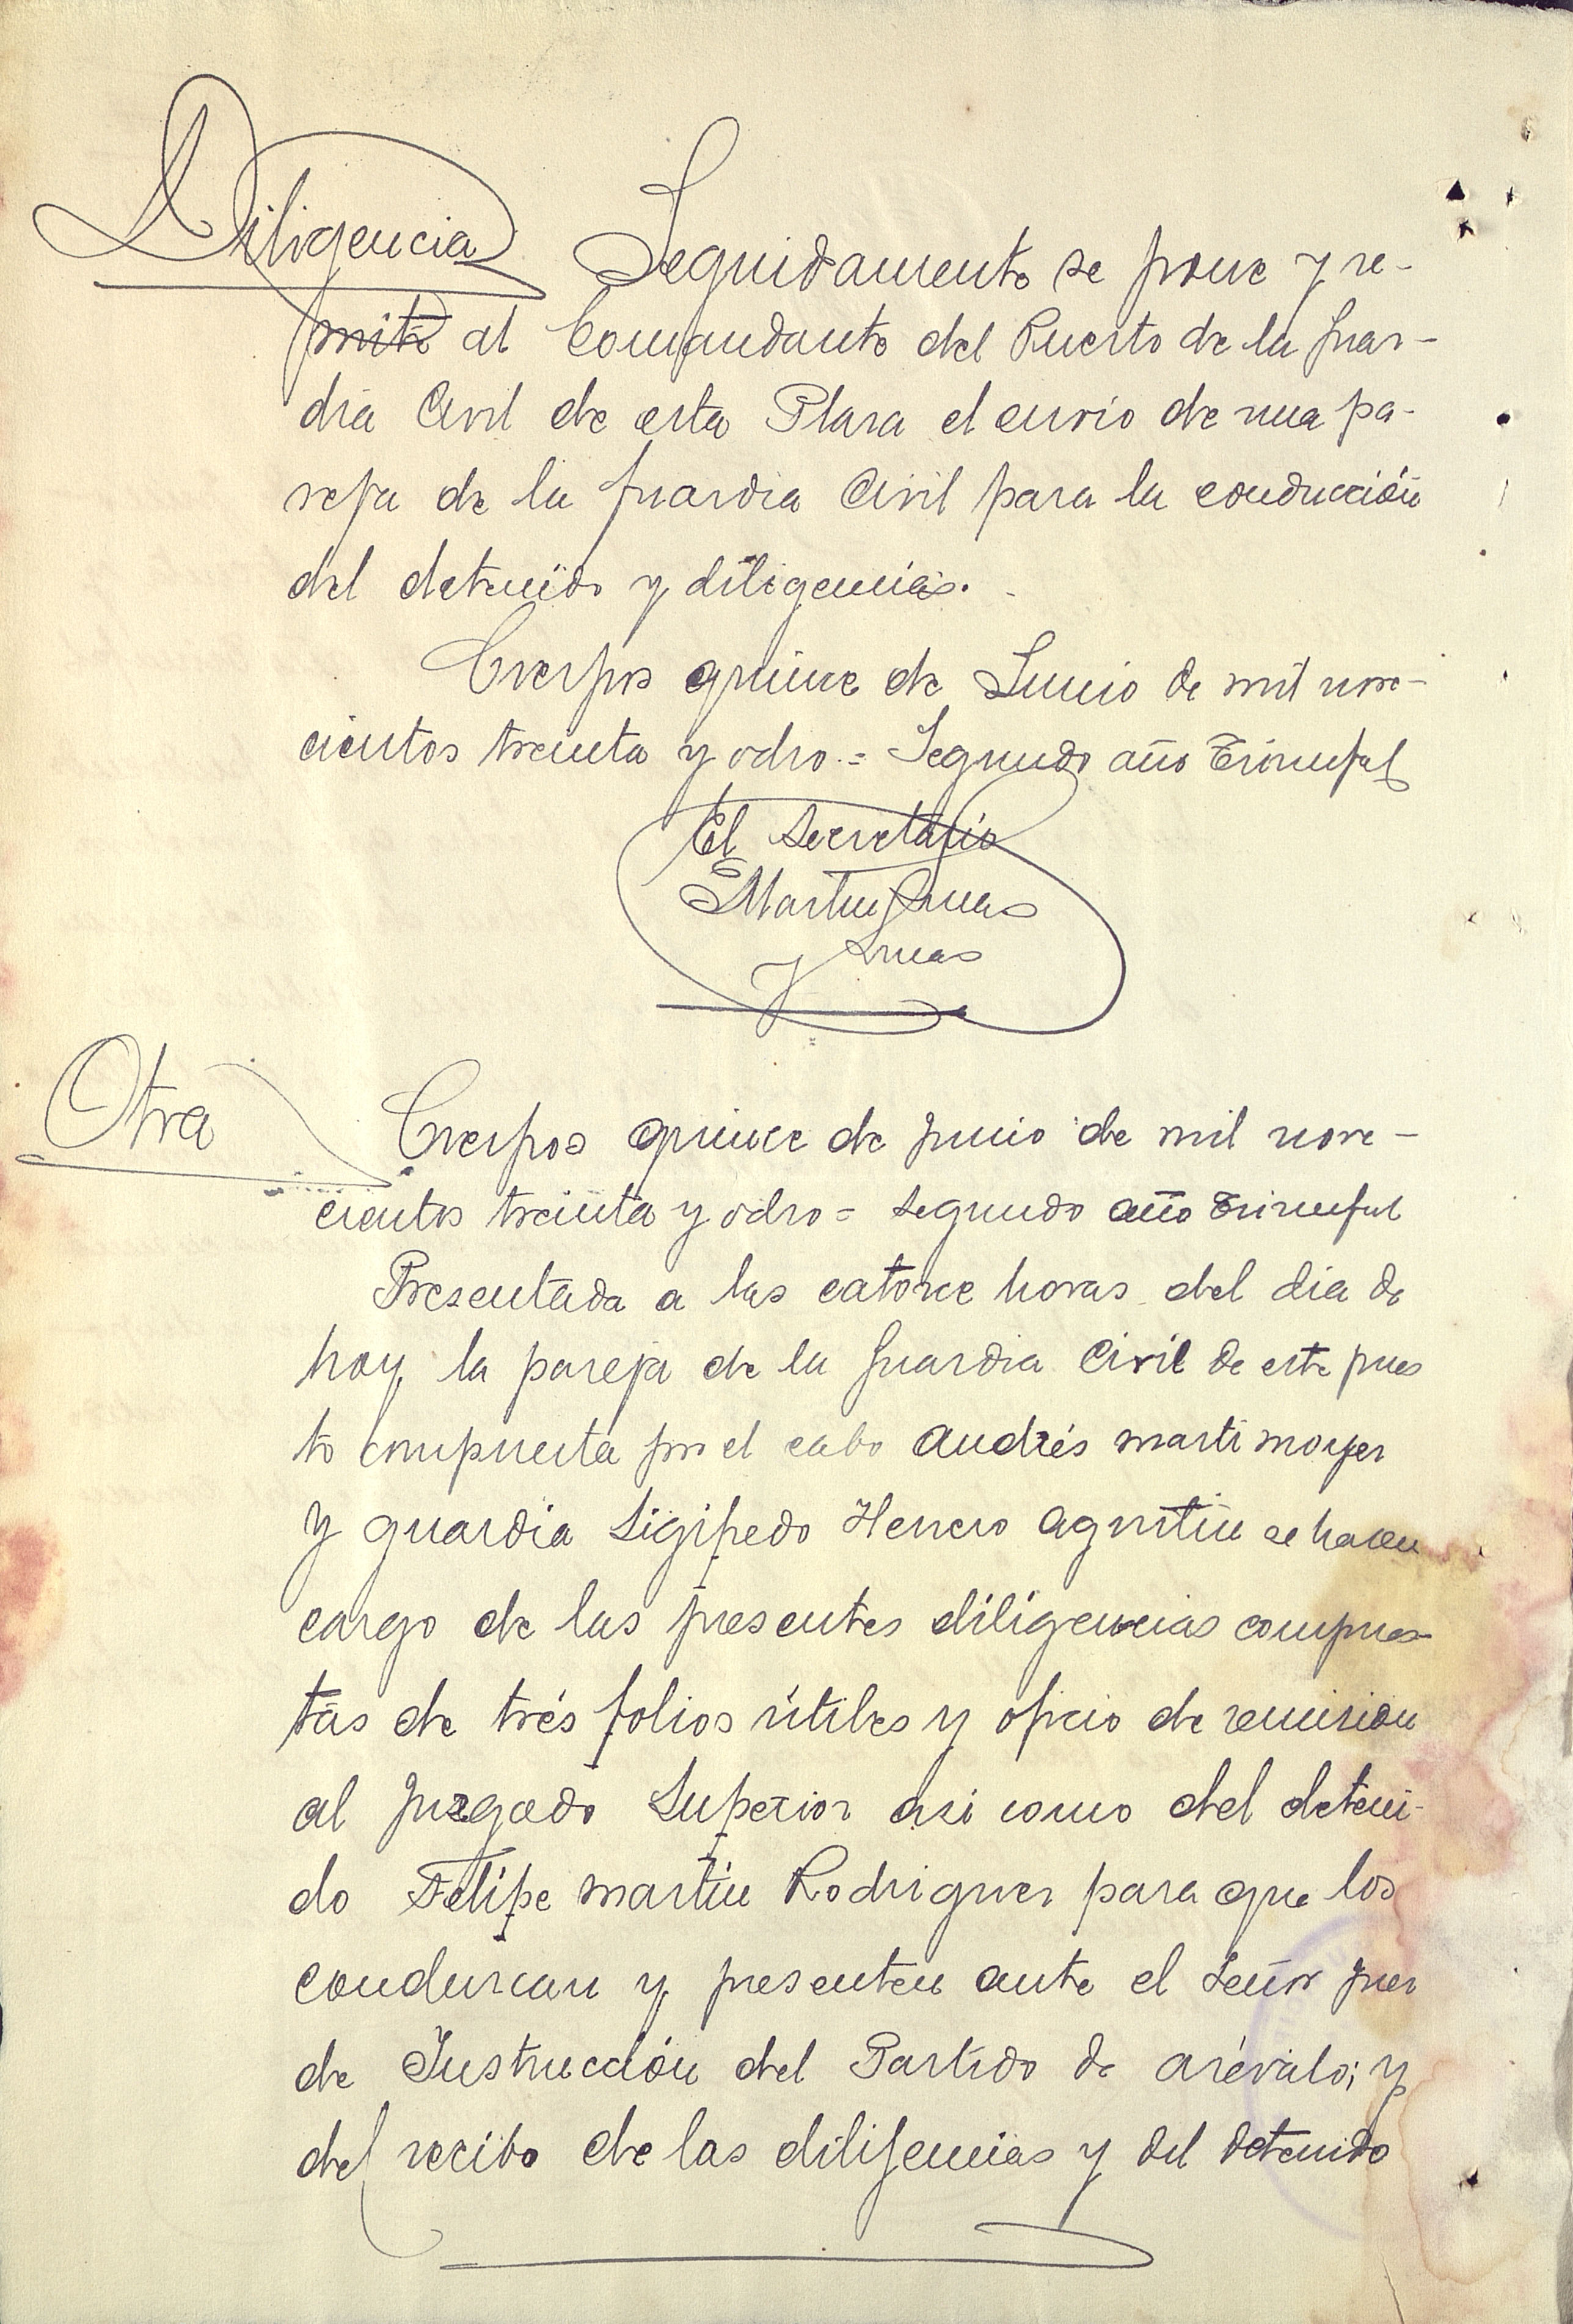 Diligencia Seguidamente se pone y re-
mite al Comandante del Puesto de la Guar-
dia Civil de esta Plaza el envio de una pa-
reja de la Guardia Civil para la conducción
del detenido y diligencias.
Crespos quince de Junio de mil nove-
cientos treinta y ocho = Segundo año Triunfal
El Secretario
E Martin Lucas
y Lucas
Otra Crespos quince de Junio de mil nove-
cientos treinta y ocho = Segundo año Triunfal
Presentada a las catorce horas del dia de
hoy, la pareja de la Guardia Civil de este pues
to compuesta por el cabo Andrés Marti
y guardia Sigifredo Herrero Agustin se hacen
cargo de las presentes diligencias compues-
tas de trés folios útiles y oficio de remision
al Juzgado Superior asi como del deteni-
do Felipe Martin Rodriguez para que los
conduzcan y presenten ante el Señor Juez
de Instrucción del Partido de Arévalo; y
del recibo de las diligencias y del detenido